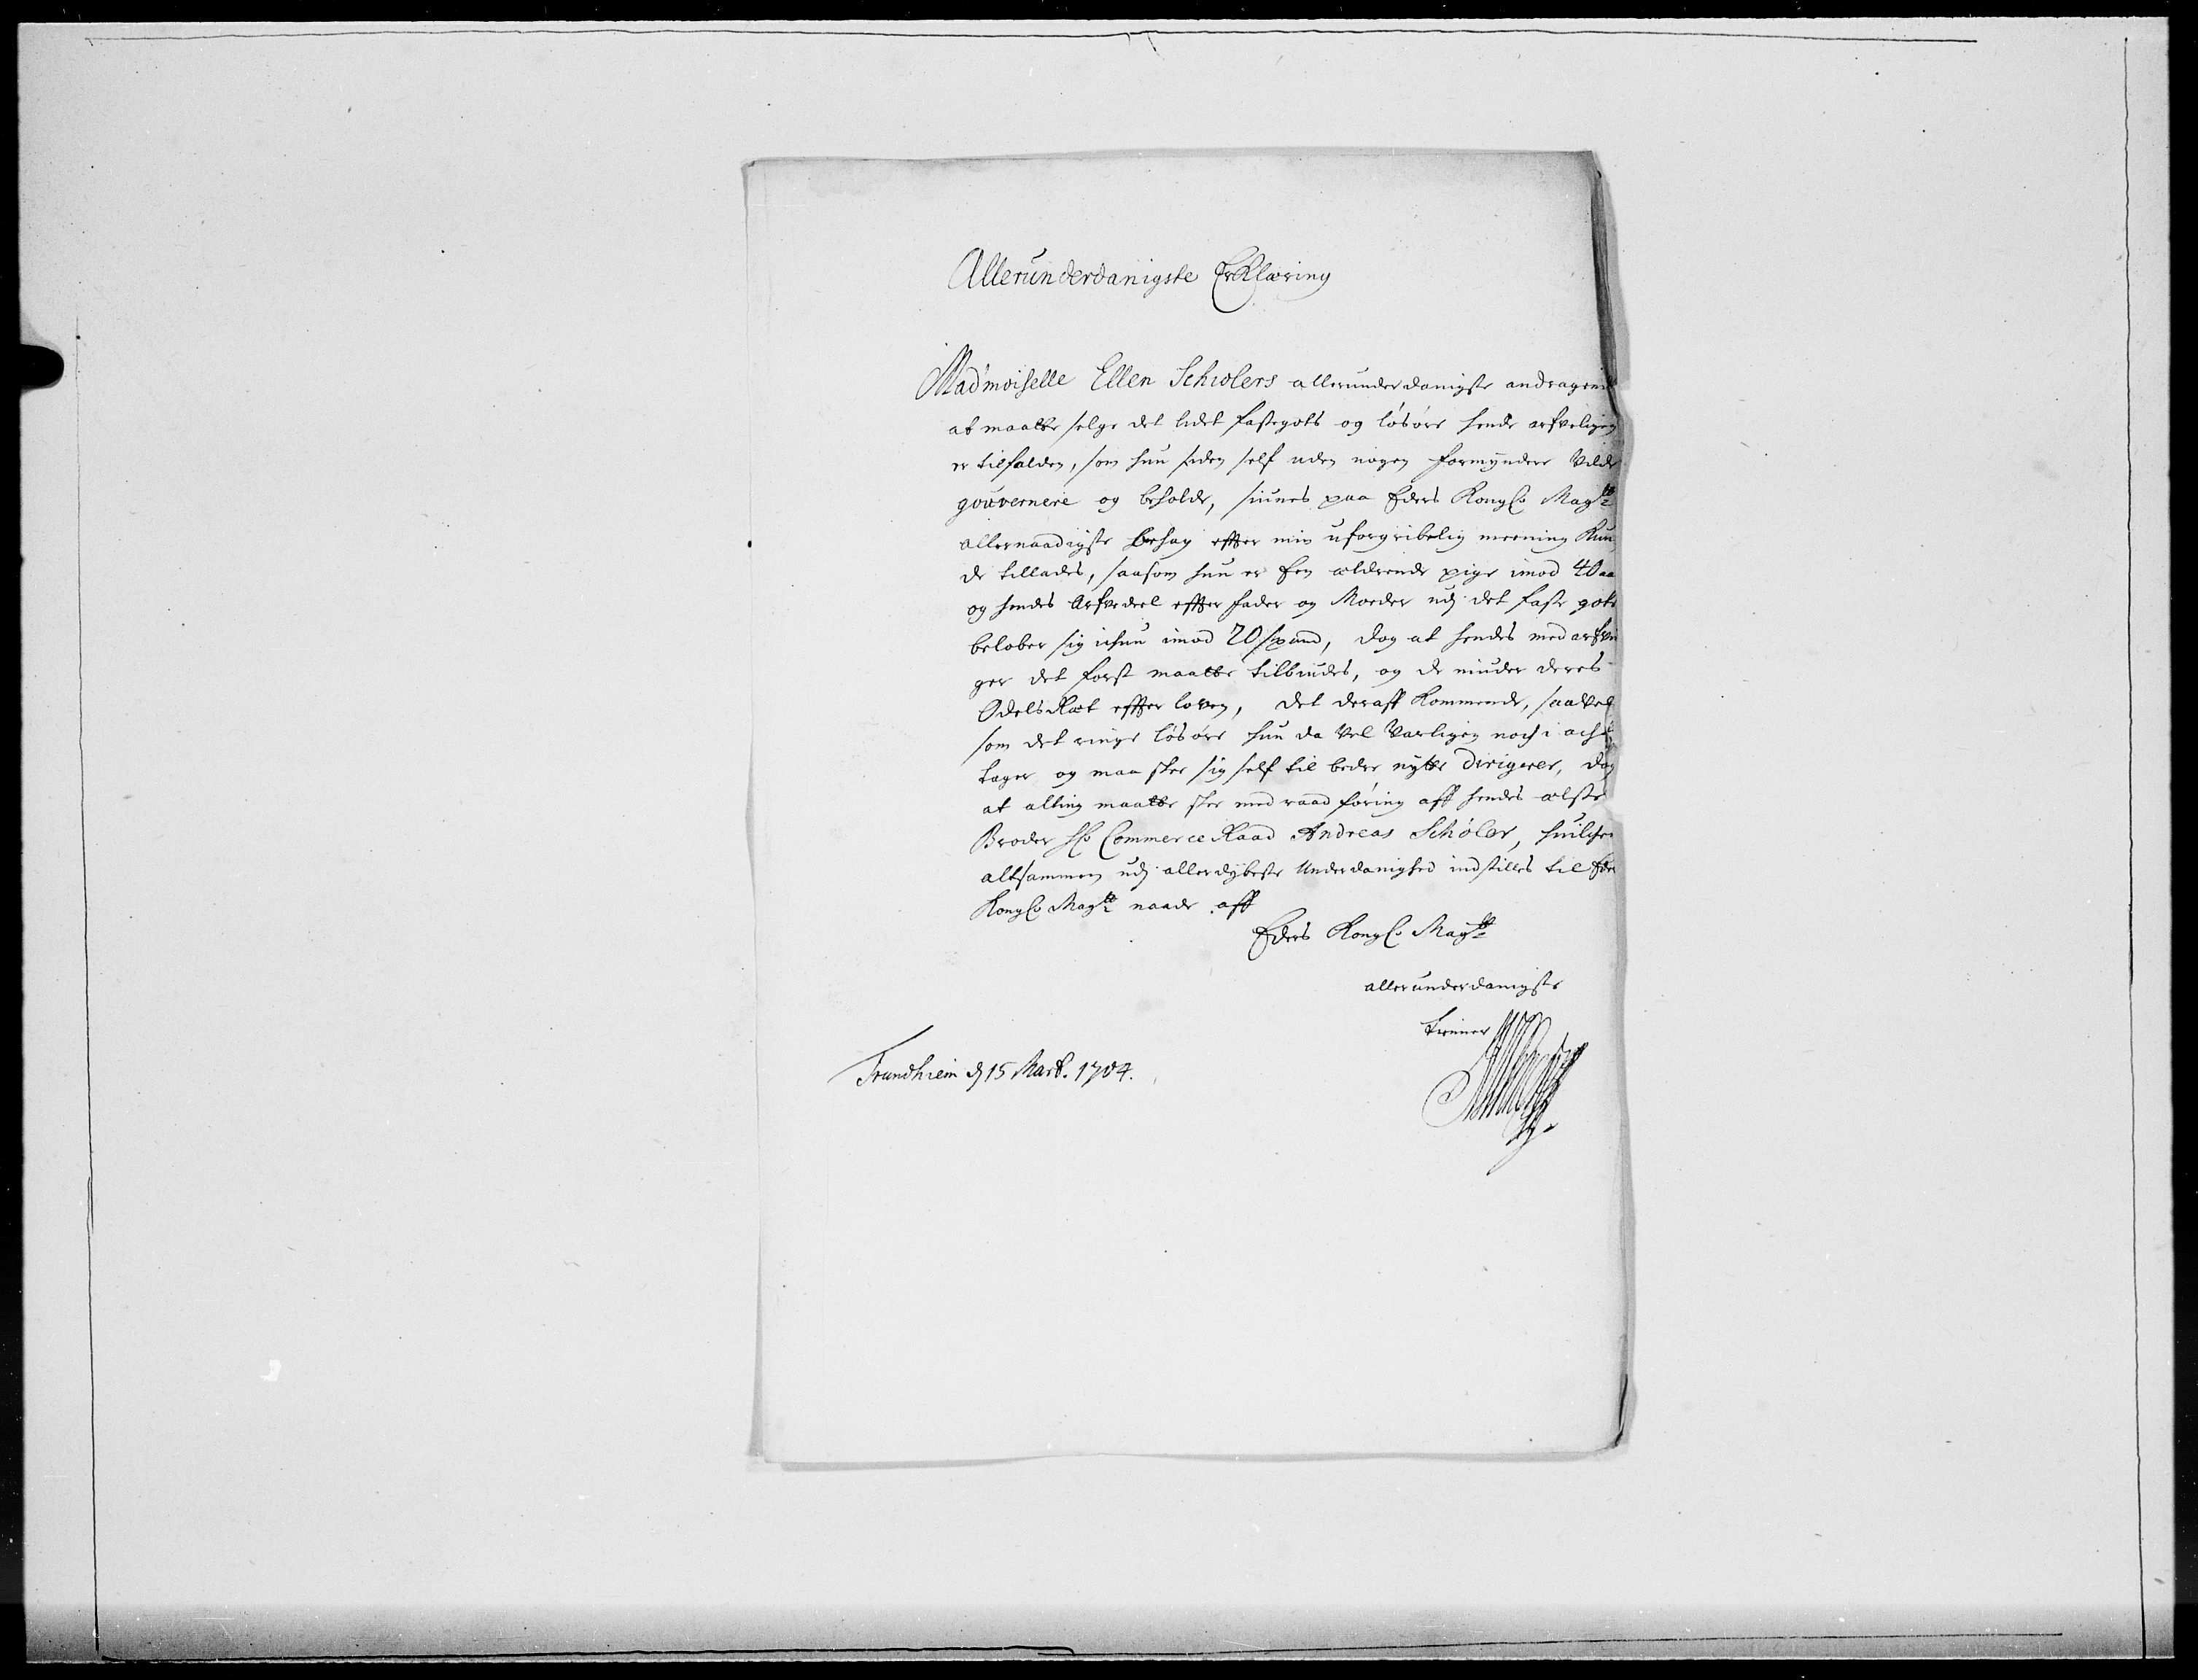 Allerunderdanigste Erklæring
Mad'moiselle Ellen Schiølers allerunderdanigste andragende
at maatte selge det lidet faste gots og løsøre hende arfveligen
er tilfalden, som hun siden self uden nogen formyndere vilde
gouvernere og beholde, siunes paa Eders Kongl. Mag.tz
allernaadigste behag effter min uforgribelig meening kun¬
de tillades, saasom hun er Een ældrende pige imod 40 aa
og hendes Arfvedeel effter fader og Moeder udj det faste gots
beløber sig ichun imod 20 spand, dog at hendes med arfvin
ger det først maatte tilbiudes, og de niuder deres
OdelsRæt effter loven, det deraff kommende, saavel
som det ringe løsøre hun da vel varligen noch i acht
tager og maa skee sig self til bedre nytte dirigerer, dog
at alting maatte skee med raadføring aff hendes ælste
Broder Hr. Commerce Raad Andreas Schøler, huilchen
altsammen udj allerdybeste Underdanighed indstilles til Eders
Kongl. Mag.tz naade aff
Eders Kongl. Mag.tz
allerunderdanigste
tienner
Trundhiem d 15 Mart. 1704.